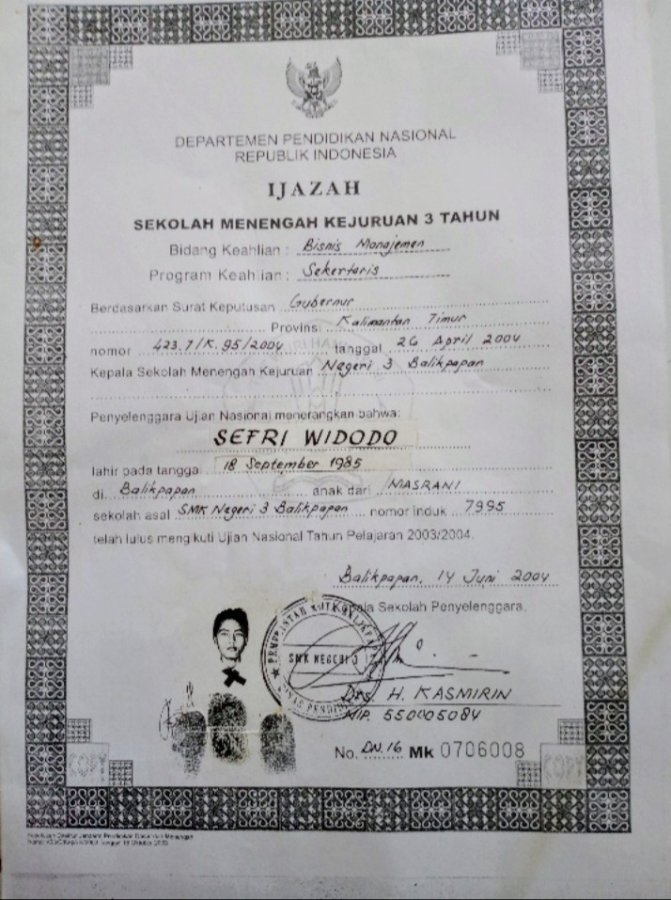 DEPARTEMEN PENDIDIKAN NASIONAL
REPUBLIK INDONESIA
IJAZAH
SEKOLAH MENENGAH KEJURUAN 3 TAHUN
Bidang Keahlian : Bisnis Manajemen
Program Keahlian : Sekertaris
Berdasarkan Surat Keputusan Gubernur
Provinsi Kalimantan Timur
nomor 423.7/K.95/2004 tanggal 26 April 2004
Kepala Sekolah Menengah Kejuruan Negeri 3 Balikpapan
Penyelenggara Ujian Nasional menerangkan bahwa:
SEFRI WIDODO
lahir pada tangga 18 September 1985
di Balikpapan anak dari MASRANI
sekolah asal SMK Negeri 3 Balikpapan nomor induk 7995
telah lulus mengikuti Ujian Nasional Tahun Pelajaran 2003/2004.
Balikpapan, 14 Juni 2004
Kepala Sekolah Penyelenggara,
SMK NEGERI 3
Drs. H. KASMIRIN
NIP. 550005084
No. DN.16 Mk 0706008
COPY COPY